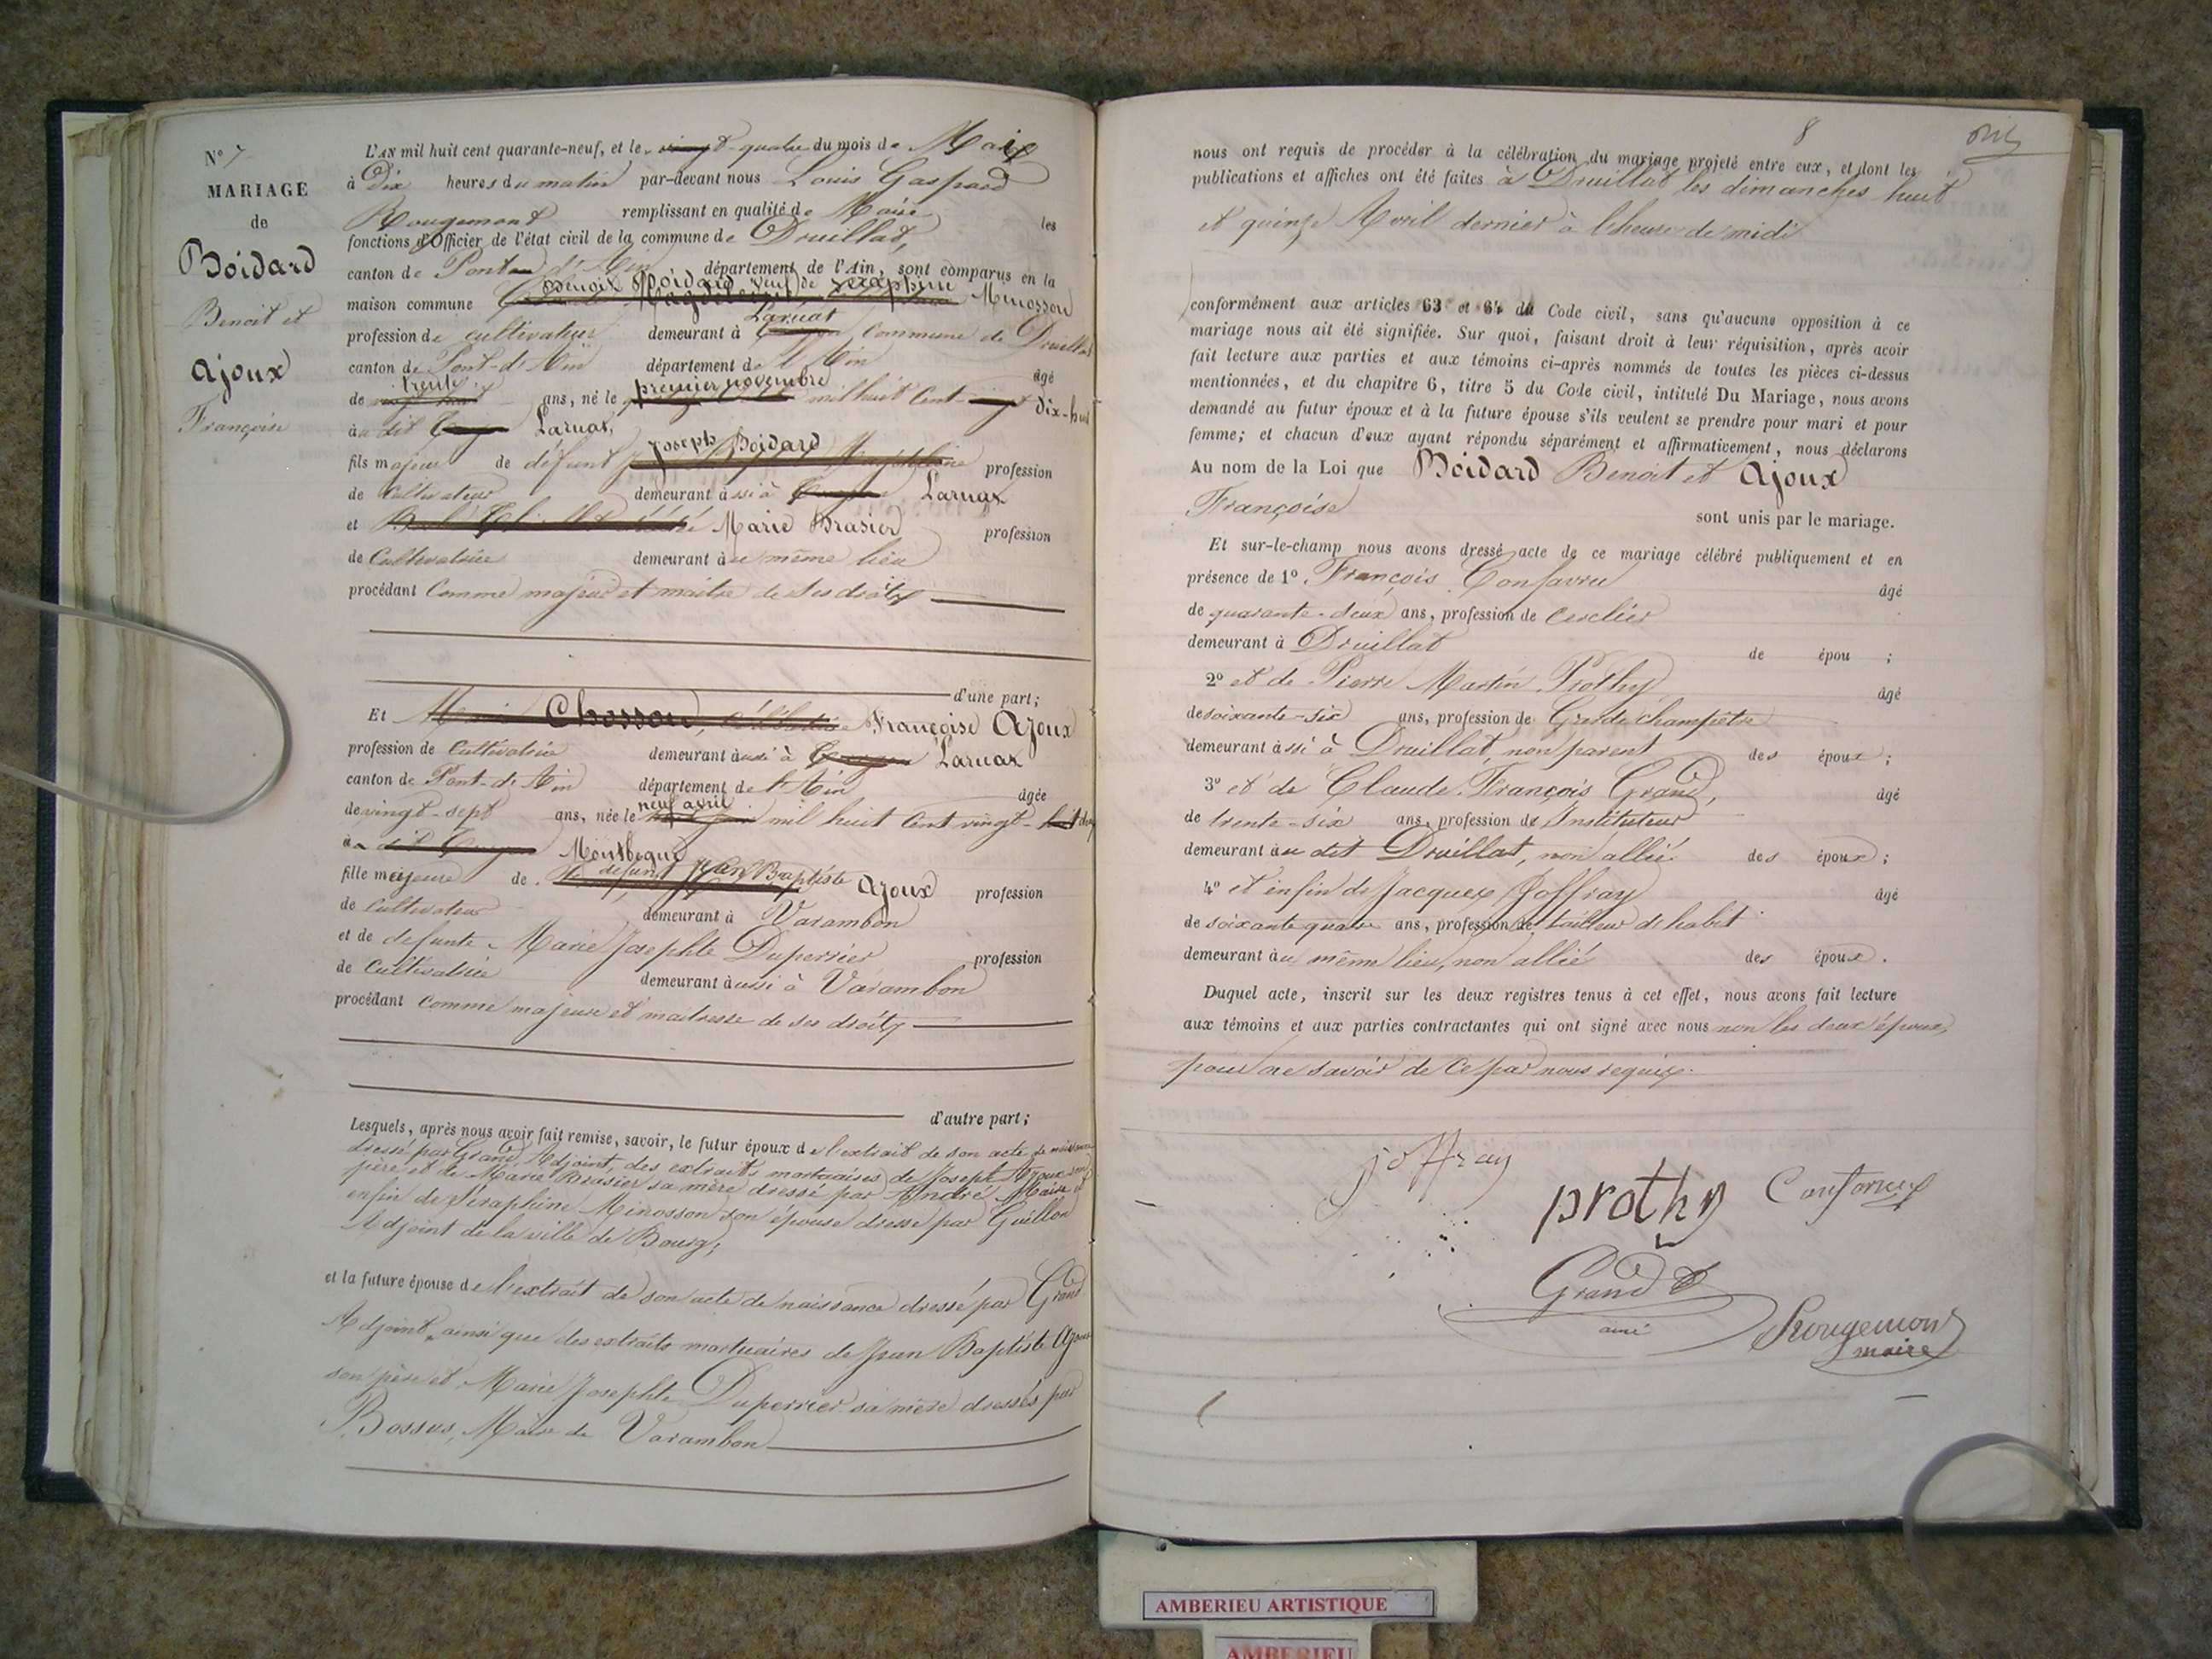 N° 7
MARIAGE
de
Boidard
Benoit et
Ajoux
Françoise
L'AN mil huit cent quarante-neuf, et le vingt-quatre du mois de Mai
à Dix heures du matin par-devant nous Louis Gaspard
Rougemont remplissant en qualité de Maire les
fonctions d'Officier de l'état civil de la commune de Druillat,
canton de Pont d'Ain département de l'Ain, sont comparus en la
maison commune Benoit Boidard veuf de Séraphine Minosson
profession de cultivateur demeurant à Laruat commune de Druillat
canton de Pont-d'Ain département de l'Ain âgé
de trente ans, né le premier novembre mil huit cent dix-huit
au dit Laruat,
fils majeur de défunt Joseph Boidard profession
de cultivateur demeurant aussi à Laruat
et Marie Brasier profession
de Cultivatrice demeurant au même lieu
procédant Comme majeur et maître de ses droits
d'une part;
Et Marie Chosson, célibataire Françoise Ajoux
profession de Cultivatrice demeurant aussi à Laruat
canton de Pont-d'Ain département de l'Ain âgée
de vingt-sept ans, née le neuf avril mil huit cent vingt-deux
à Montbegue
fille majeure de défunt Jean Baptiste Ajoux profession
de Cultivateur demeurant à Varambon
et de défunte Marie Josephte Duperrier profession
de Cultivatrice demeurant aussi à Varambon
procédant Comme majeure et maitresse de ses droits
d'autre part;
Lesquels, après nous avoir fait remise, savoir, le futur époux de l'extrait de son acte de naissance
dressé par Grand Adjoint, des extraits mortuaires de Joseph son
père et de Marie Brasier sa mère dressé par André Maire et
enfin de Séraphine Minosson son épouse dressé par Guillon
Adjoint de la ville de Bourg;
et la future épouse de l'extrait de son acte de naissance dressé par Grand
Adjoint, ainsi que des extraits mortuaires de Jean Baptiste Ajoux
son père et Marie Josephte Duperrier sa mère dressés par
Bossus, Maire de Varambon
8
nous ont requis de procéder à la célébration du mariage projeté entre eux, et dont les
publications et affiches ont été faites à Druillat les dimanches huit
et quinze Avril dernier à l'heure de midi
conformément aux articles 63 et 64 du Code civil, sans qu'aucune opposition à ce
mariage nous ait été signifiée. Sur quoi, faisant droit à leur réquisition, après avoir
fait lecture aux parties et aux témoins ci-après nommés de toutes les pièces ci-dessus
mentionnées, et du chapitre 6, titre 5 du Code civil, intitulé Du Mariage, nous avons
demandé au futur époux et à la future épouse s'ils veulent se prendre pour mari et pour
femme; et chacun d'eux ayant répondu séparément et affirmativement, nous déclarons
Au nom de la Loi que Boidard Benoit et Ajoux
Françoise sont unis par le mariage.
Et sur-le-champ nous avons dressé acte de ce mariage célébré publiquement et en
présence de 1° François Confavreu âgé
de quarante-deux ans, profession de cerclier
demeurant à Druillat de épou ;
2° et de Pierre Martin Prothy âgé
de soixante-six ans, profession de Garde champêtre
demeurant aussi à Druillat, non parent des époux ;
3° et de Claude François Grand, âgé
de trente-six ans, profession d'Instituteur
demeurant au dit Druillat, non allié des époux ;
4° et enfin de Jacques Joffray âgé
de soixante quatre ans, profession de tailleur d'habit
demeurant au même lieu, non allié des époux.
Duquel acte, inscrit sur les deux registres tenus à cet effet, nous avons fait lecture
aux témoins et aux parties contractantes qui ont signé avec nous non les deux époux,
pour ne savoir de ce par nous requis.
joffray
prothy
Confavreux
Grand
ainé
Rougemont
maire
AMBERIEU ARTISTIQUE
AMBERIEU